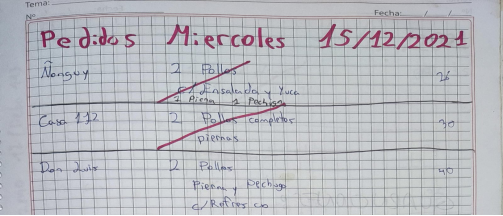 Tema:
Nº
Fecha: / /
Pedidos Miercoles 15/12/2021
Ñonguy 2 Pollos 26
c/ Ensalada y Yuca
1 Pierna 1 Pechuga
Casa 112 2 Pollos completos 30
piernas
Don Luis 2 Pollos 40
Pierna y Pechuga
c/ Refresco